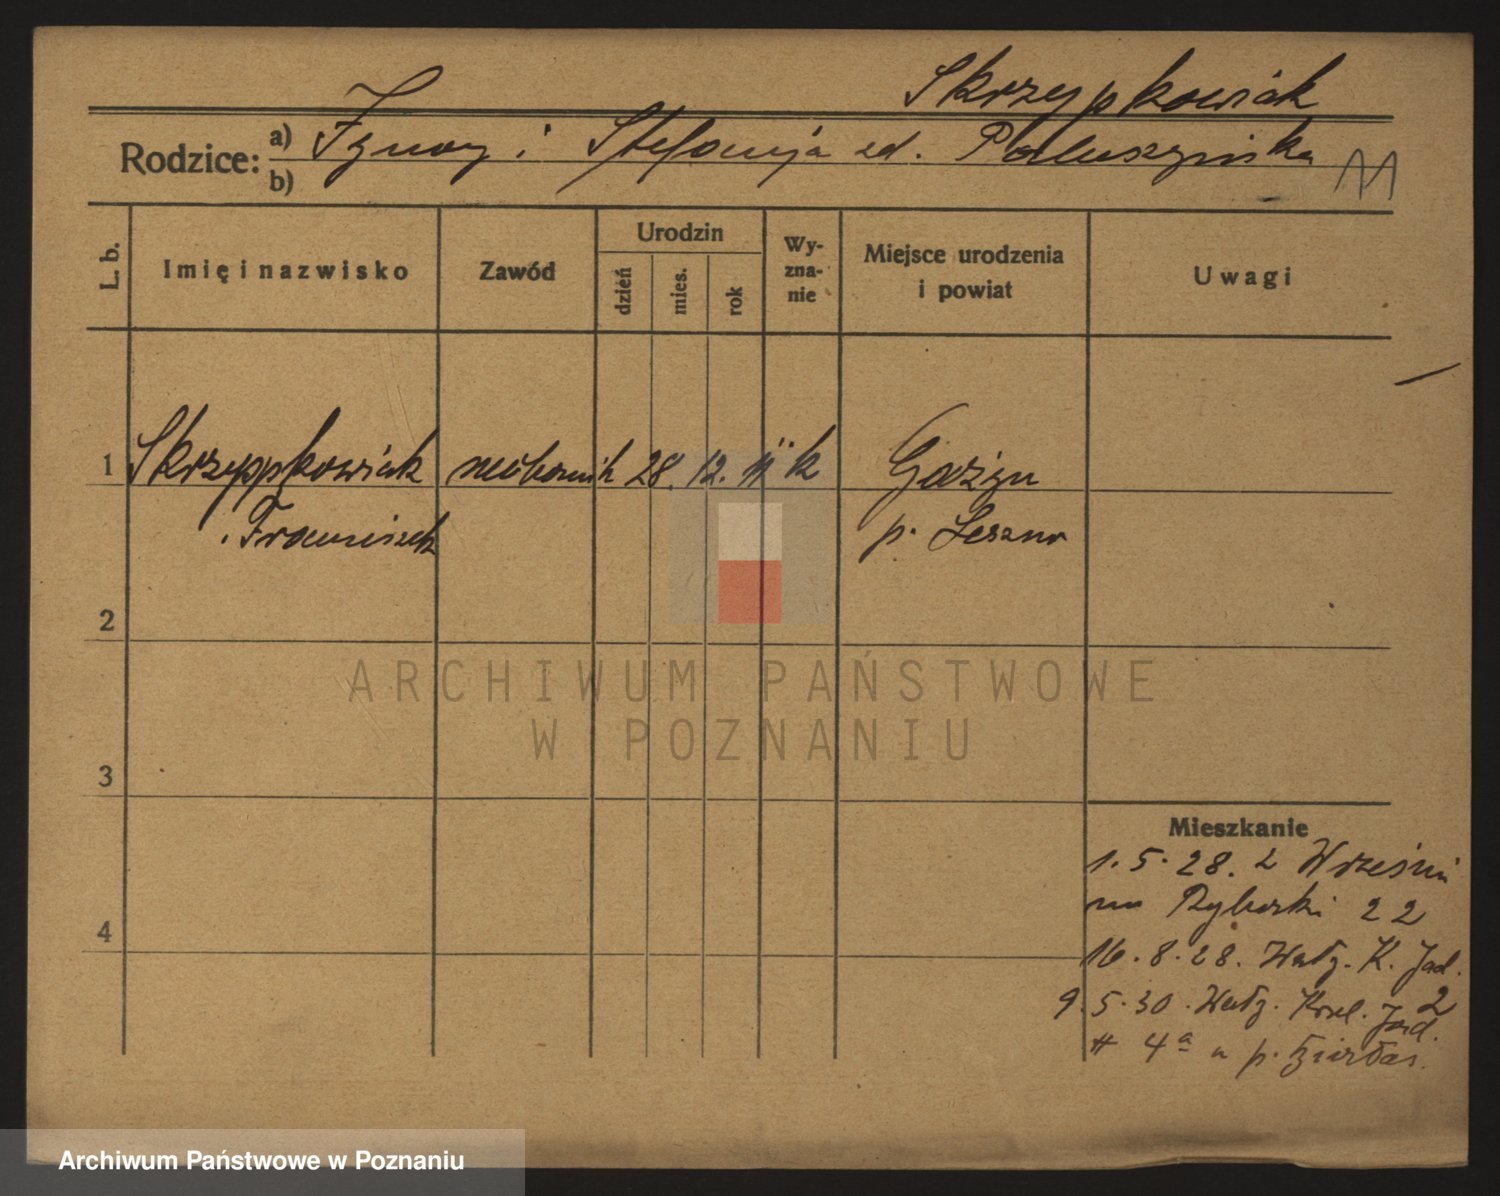 Skrzypkowiak
Rodzice: a) Ignacy i Stefanija zd. Paluszyńska
b)
L. b.
Imię i nazwisko
Zawód
Urodzin
dzień
mies.
rok
Wy-
zna-
nie
Miejsce urodzenia
i powiat
Uwagi
1 Skrzyppkowiak robotnik 28. 12. 11 k
Franciszek
p. Leszno
2
ARCHIWUM PAŃSTWOWE
W POZNANIU
3
Mieszkanie
1. 5. 28. z Wrześni
na Rybaki 22
4
16. 8. 28. Wały. K. Jad.
2
9. 5. 30. Wały. Krel. Jad.
4a u p.
Archiwum Państwowe w Poznaniu